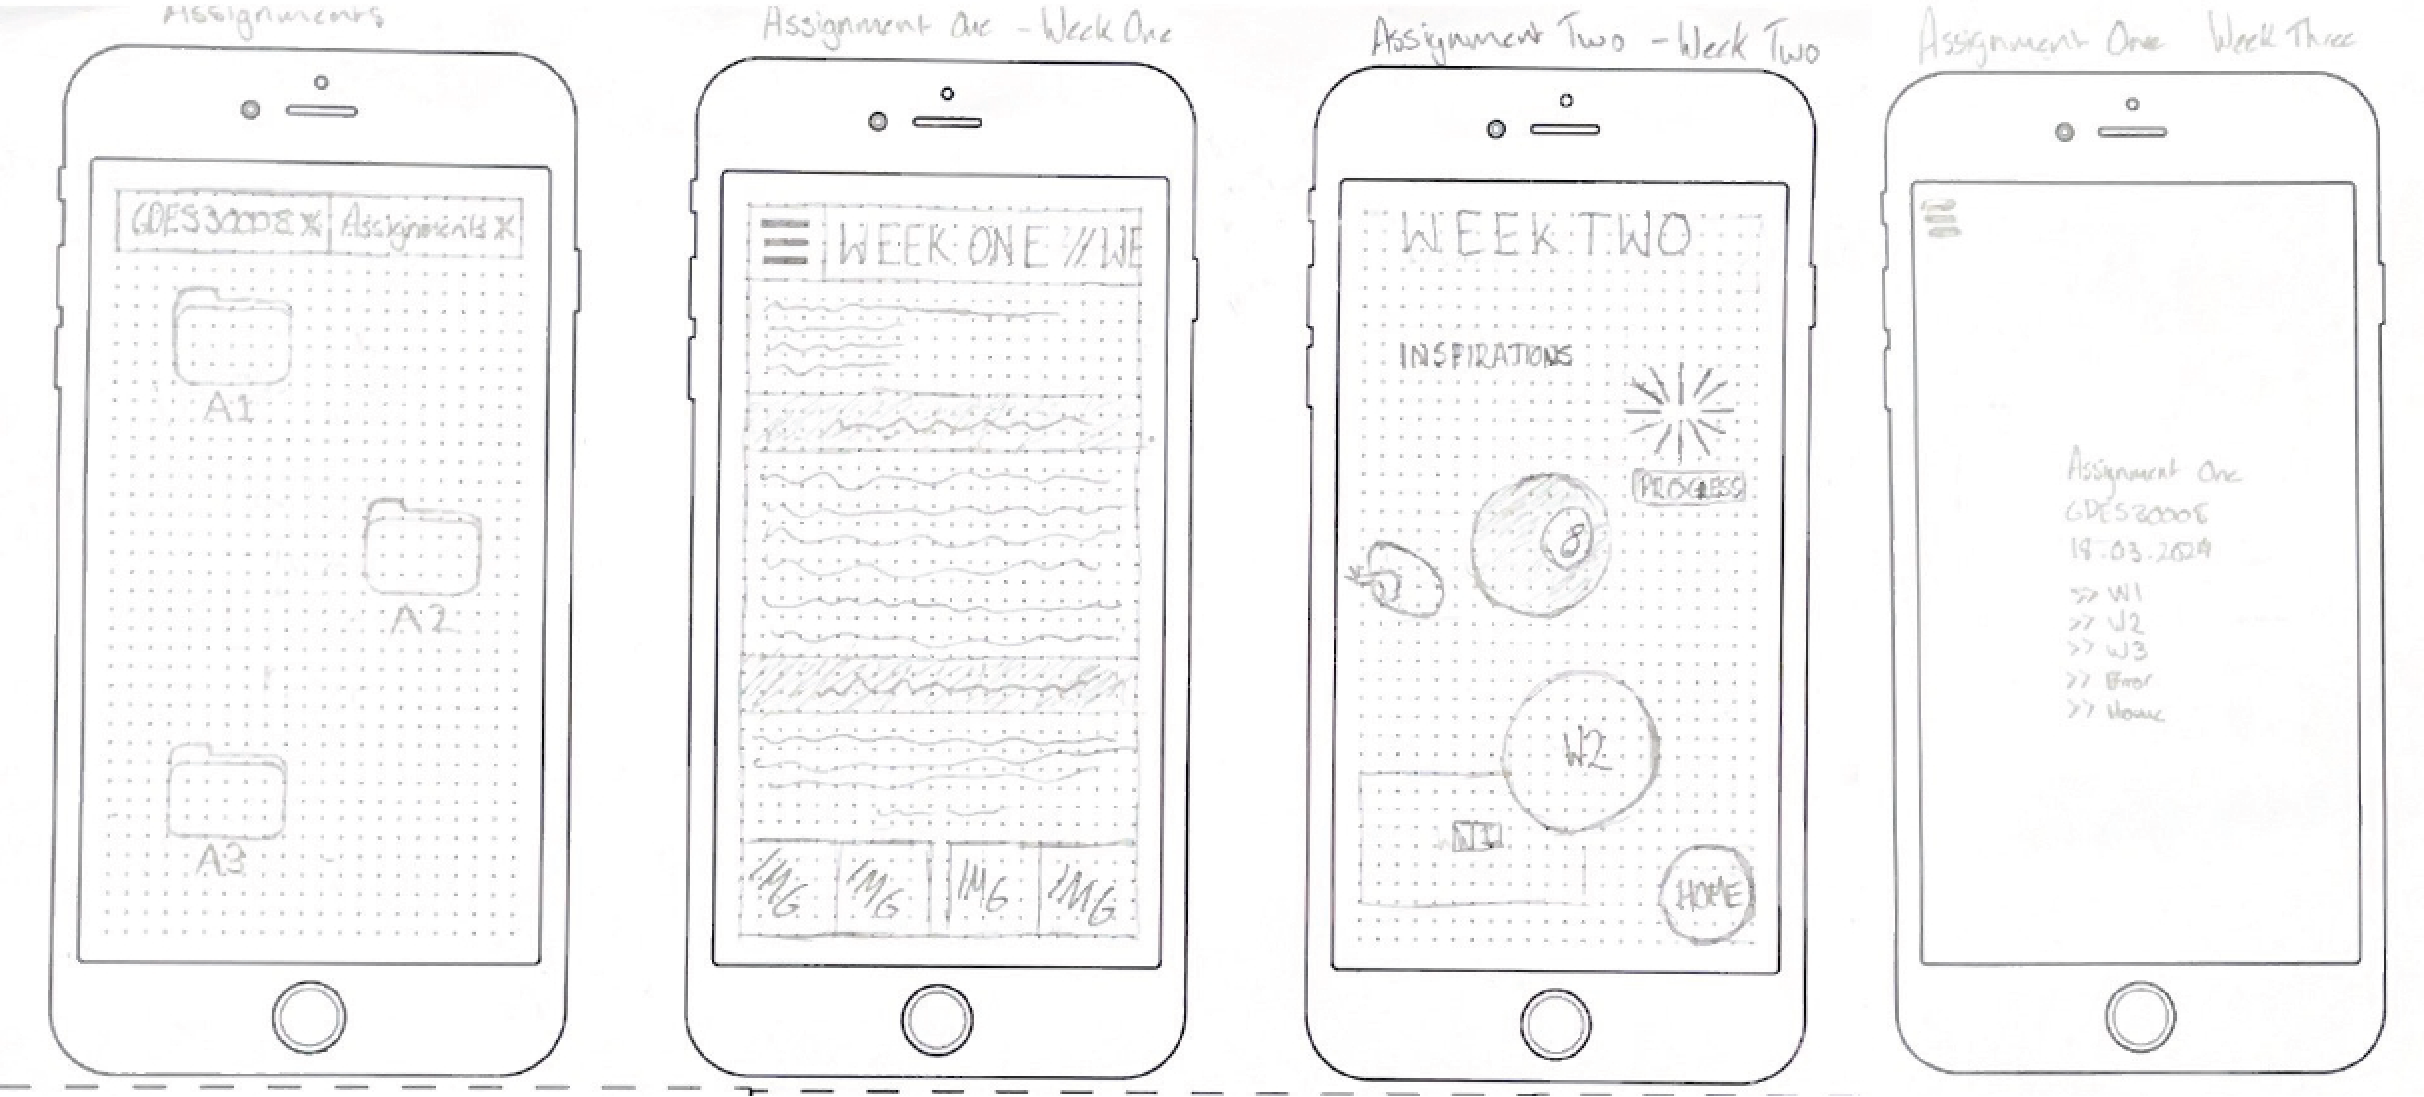 Assignments
GDES30008 X Assignments X
A1
A2
A3
Assignment One - Week One
WEEK ONE // WE
IMG IMG IMG IMG
Assignment Two - Week Two
WEEK TWO
INSPIRATIONS
PROGRESS
8
W2
HOME
Assignment One Week Three
Assignment One
GDES30008
18.03.2024
>> W1
>> W2
>> W3
>> Error
>> Home